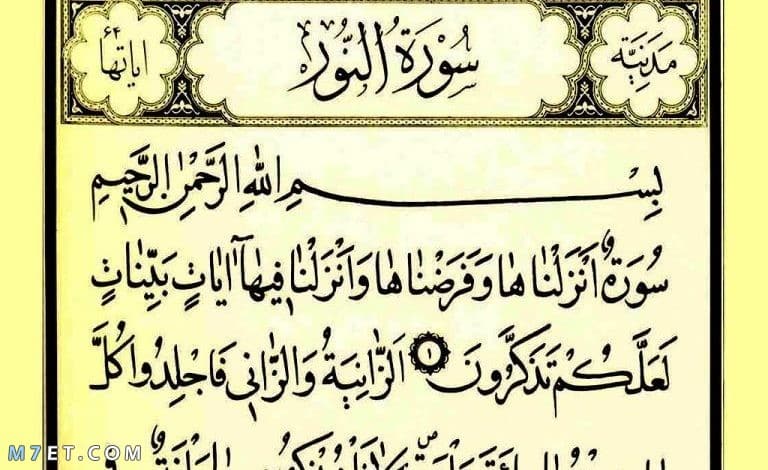 مَدَنِيَّة
سُورَةُ النُّورِ
اياتها ٦٤
بِسْمِ اللهِ الرَّحْمٰنِ الرَّحِيمِ
سُورَةٌ اَنْزَلْنَاهَا وَفَرَضْنَاهَا وَاَنْزَلْنَا فِيهَٓا اٰيَاتٍ بَيِّنَاتٍ
لَعَلَّكُمْ تَذَكَّرُونَ ١ اَلزَّانِيَةُ وَالزَّانِي فَاجْلِدُوا كُلَّ
M7ET.COM